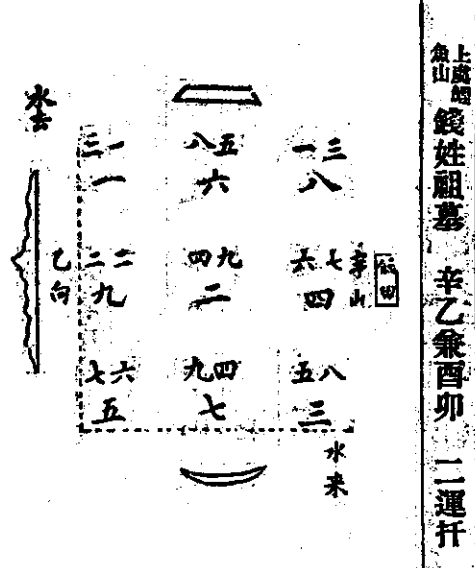 上虞鱷魚山
錢姓祖墓 辛乙兼酉卯 二運扦
水去
三一 八五 一三
一 六 八
乙向
二二 四九 六七
九 二 四
辛山
七六 九四 五八
五 七 三
水来